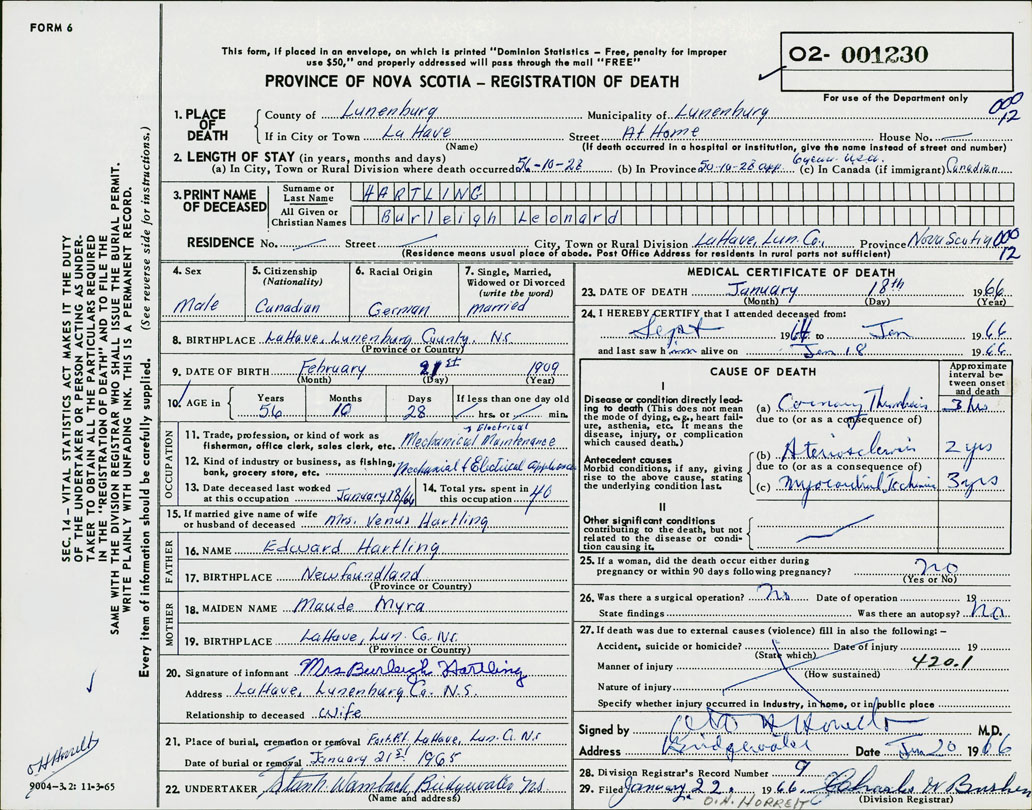 FORM 6
This form, if placed in an envelope, on which is printed "Dominion Statistics – Free, penalty for improper
use $50," and properly addressed will pass through the mail "FREE"
PROVINCE OF NOVA SCOTIA – REGISTRATION OF DEATH
O2- 001230
For use of the Department only
SEC. 14 – VITAL STATISTICS ACT MAKES IT THE DUTY
OF THE UNDERTAKER OR PERSON ACTING AS UNDER-
TAKER TO OBTAIN ALL THE PARTICULARS REQUIRED
IN THE "REGISTRATION OF DEATH" AND TO FILE THE
SAME WITH THE DIVISION REGISTRAR WHO SHALL ISSUE THE BURIAL PERMIT.
WRITE PLAINLY WITH UNFADING INK. THIS IS A PERMANENT RECORD.
Every item of information should be carefully supplied. (See reverse side for instructions.)
1. PLACE OF DEATH
County of Lunenburg Municipality of Lunenburg
000
12
If in City or Town La Have Street At Home House No.
(Name) (If death occurred in a hospital or institution, give the name instead of street and number)
2. LENGTH OF STAY (in years, months and days) 6 years U.S.A.
(a) In City, Town or Rural Division where death occurred 56-10-28 (b) In Province 50-10-28 app (c) In Canada (if immigrant) Canadian
3. PRINT NAME OF DECEASED
Surname or Last Name HARTLING
All Given or Christian Names Burleigh Leonard
RESIDENCE No. Street City, Town or Rural Division LaHave, Lun. Co., Province Nova Scotia 000
12
(Residence means usual place of abode. Post Office Address for residents in rural parts not sufficient)
4. Sex
Male
5. Citizenship
(Nationality)
Canadian
6. Racial Origin
German
7. Single, Married,
Widowed or Divorced
(write the word)
married
8. BIRTHPLACE LaHave, Lunenburg County, N.S.
(Province or Country)
9. DATE OF BIRTH February 21st 1909
(Month) (Day) (Year)
10. AGE in Years 56 Months 10 Days 28 If less than one day old hrs. or min.
OCCUPATION
Electrical
11. Trade, profession, or kind of work as
fisherman, office clerk, sales clerk, etc. Mechanical Maintenance
12. Kind of industry or business, as fishing,
bank, grocery store, etc. Mechanical & Electrical appliances
13. Date deceased last worked
at this occupation January 18/66
14. Total yrs. spent in
this occupation 40
15. If married give name of wife
or husband of deceased Mrs. Venus Hartling
FATHER
16. NAME Edward Hartling
17. BIRTHPLACE Newfoundland
(Province or Country)
MOTHER
18. MAIDEN NAME Maude Myra
19. BIRTHPLACE LaHave, Lun. Co. N.S.
(Province or Country)
20. Signature of informant Mrs. Burleigh Hartling
Address LaHave, Lunenburg Co. N.S.
Relationship to deceased Wife
21. Place of burial, cremation or removal LaHave, Lun. Co. N.S
Date of burial or removal January 21st 1965
22. UNDERTAKER Wambach, Bridgewater N.S.
(Name and address)
9004-3.2: 11-3-65
MEDICAL CERTIFICATE OF DEATH
23. DATE OF DEATH January 18th 1966
(Month) (Day) (Year)
24. I HEREBY CERTIFY that I attended deceased from:
Sept 1964 to Jan 1966
and last saw him alive on Jan 18 1966
CAUSE OF DEATH
Approximate
interval be-
tween onset
and death
I
Disease or condition directly lead-
ing to death (This does not mean
the mode of dying, e.g., heart fail-
ure, asthenia, etc. It means the
disease, injury, or complication
which caused death.)
(a) Coronary Thrombosis 3 hrs
due to (or as a consequence of)
Antecedent causes
Morbid conditions, if any, giving
rise to the above cause, stating
the underlying condition last.
(b) Arteriosclerosis 2 yrs
due to (or as a consequence of)
(c) Myocardial Ischemia 3 yrs
II
Other significant conditions
contributing to the death, but not
related to the disease or condi-
tion causing it.
25. If a woman, did the death occur either during
pregnancy or within 90 days following pregnancy? no
(Yes or No)
26. Was there a surgical operation? no Date of operation 19
State findings Was there an autopsy? no
27. If death was due to external causes (violence) fill in also the following: –
Accident, suicide or homicide? Date of injury 19
(State which)
Manner of injury 420.1
(How sustained)
Nature of injury
Specify whether injury occurred in industry, in home, or in public place
Signed by M.D.
Address Bridgewater Date Jan 20 1966
28. Division Registrar's Record Number 9
29. Filed January 22, 1966
(Division Registrar)
O.H. HORRELT